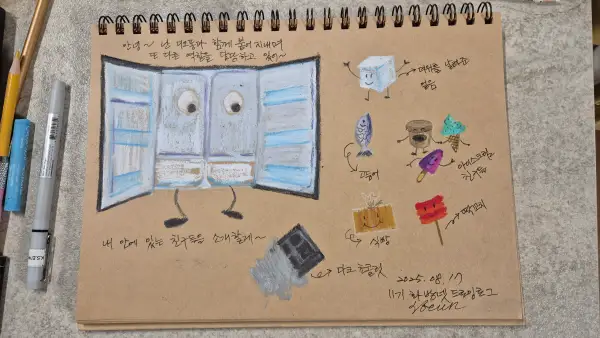 안녕~ 난 너모둑과 함께 붙어 지내며
또 다른 역할을 담당하고 있어~
더위를 날려줄
얼음
고등어
아이스크림
친구들
내 안에 있는 친구들을 소개할게~
식빵
떡꼬치
다크 초콜릿
2025. 08. 17
11기 화방넷 드로잉로그
Soeun